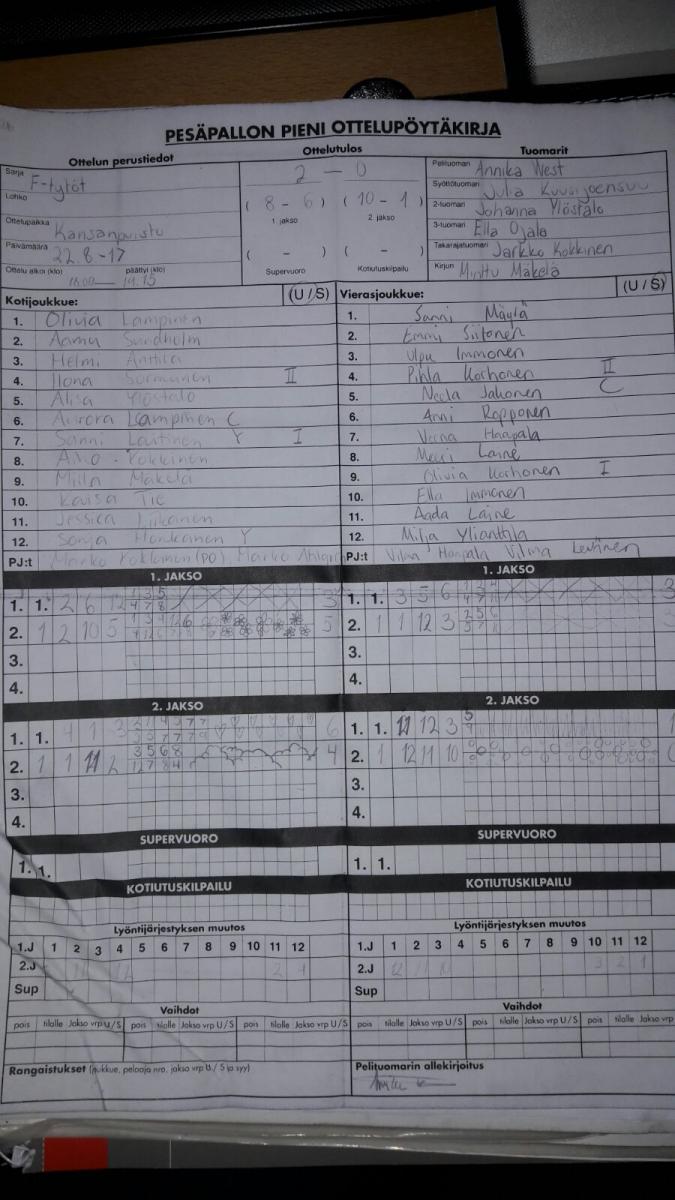 PESÄPALLON PIENI OTTELUPÖYTÄKIRJA
Ottelun perustiedot
Ottelutulos
Tuomarit
Sarja F-tytöt
Lohko
Ottelupaikka Kansanpuisto
Päivämäärä 22.8-17
Ottelu alkoi (klo) 18.00 päättyi (klo) 19.15
2 - 0
(8 - 6) (10 - 1)
1. jakso 2. jakso
( - ) ( - )
Supervuoro Kotiutuskilpailu
Pelituomari Annika West
Syöttötuomari Julia Kuusijoensuu
2-tuomari Johanna Ylöstalo
3-tuomari Ella Ojala
Takarajatuomari Jarkko Kokkinen
Kirjuri Minttu Mäkelä
Kotijoukkue: (U/S)
1. Olivia Lampinen
2. Aamu Sundholm
3. Helmi Anttila
4. Ilona Sormunen II
5. Alisa Ylöstalo
6. Aurora Lampinen C
7. Sanni Lautinen Y I
8. Aino Kokkinen
9. Milla Mäkelä
10. Kaisa Tie
11. Jessica Liikanen
12. Sonja Honkanen Y
PJ:t Marko Kokkinen (PO), Marko
Vierasjoukkue: (U/S)
1. Sanni Mäylä
2. Emmi Siitonen
3. Ulpu Immonen
4. Pihla Korhonen II
5. Neela Jakonen C
6. Anni Ropponen
7. Veena Haapala
8. Meri Laine
9. Olivia Korhonen I
10. Ella Immonen
11. Aada Laine
12. Milja
PJ:t Vilma Haapala Vilma Levinen
1. JAKSO
1. 1. 2 6 12 1 3 5 3
4 7 8
2. 1 2 10 5 5
3.
4.
1. JAKSO
1. 1. 3 5 6 3
2. 1 1 12 3 2 5 6 3
3.
4.
2. JAKSO
1. 1. 4 1 3 6
2. 1 1 11 2 3 5 6 8 4
1 2 7 8 4
3.
4.
2. JAKSO
1. 1. 11 12 3 5 1
9
2. 1 12 11 10 0
3.
4.
SUPERVUORO
1. 1.
SUPERVUORO
1. 1.
KOTIUTUSKILPAILU
KOTIUTUSKILPAILU
Lyöntijärjestyksen muutos
1.J 1 2 3 4 5 6 7 8 9 10 11 12
2.J 2 1
Sup
Lyöntijärjestyksen muutos
1.J 1 2 3 4 5 6 7 8 9 10 11 12
2.J 12 11 10 3 2 1
Sup
Vaihdot
pois tilalle Jakso vrp U/S pois tilalle Jakso vrp U/S pois tilalle Jakso vrp U/S
Vaihdot
pois tilalle Jakso vrp U/S pois tilalle Jakso vrp U/S pois tilalle Jakso vrp
Rangaistukset (joukkue, pelaaja nro, jakso vrp U / S ja syy)
Pelituomarin allekirjoitus